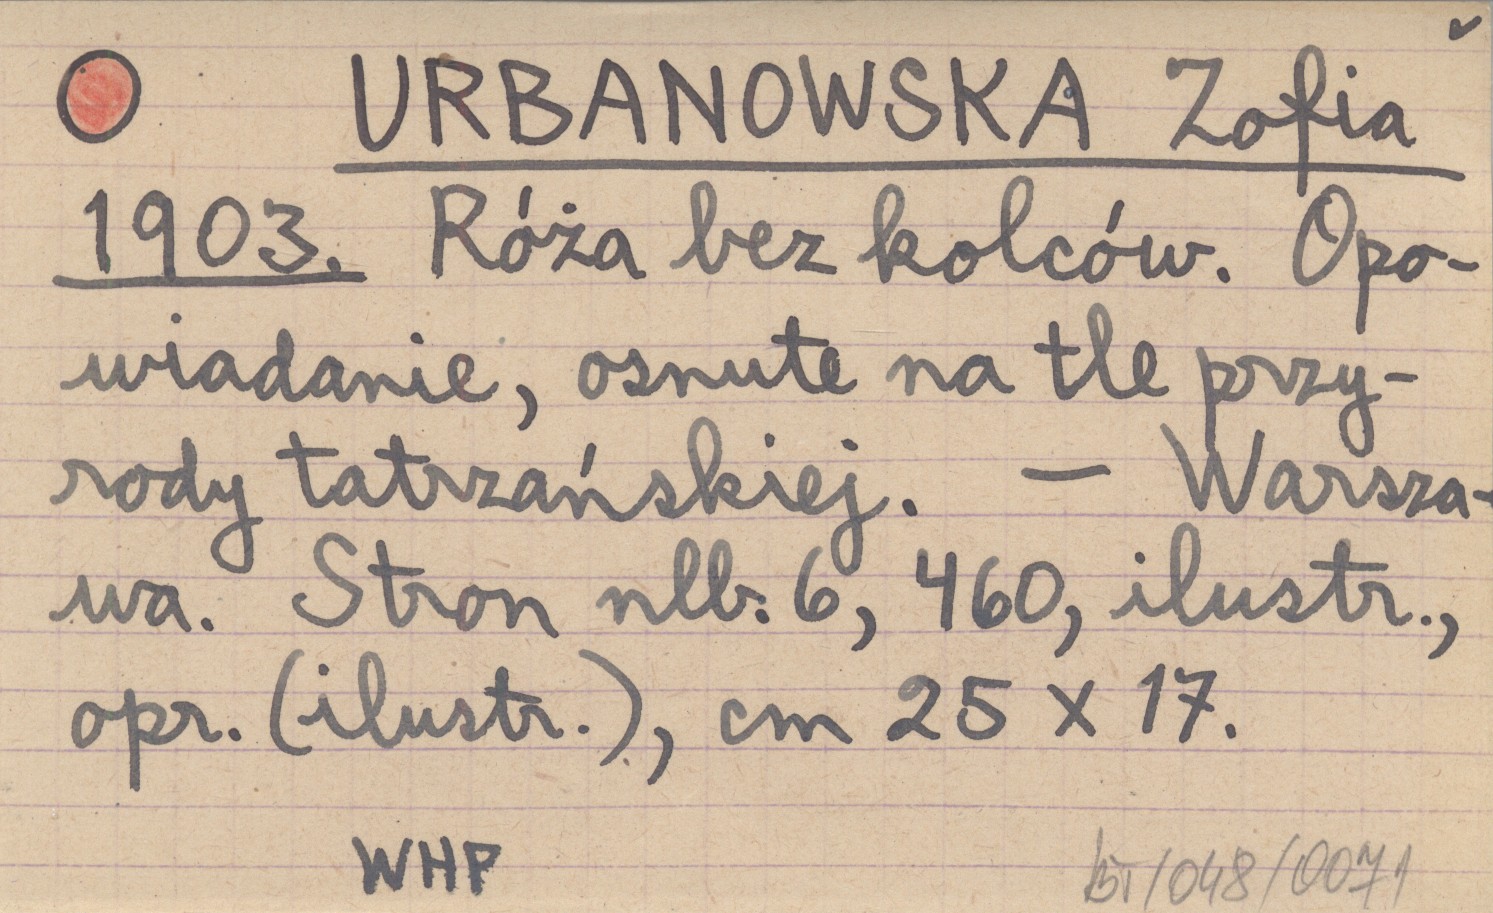 URBANOWSKA Zofia
1903. Róża bez kolców. Opo-
wiadanie, osnute na tle przy-
rody tatrzańskiej. — Warsza-
wa. Stron nlb. 6, 460, ilustr.,
opr. (ilustr.), cm 25 x 17.
WHP
BT/048/0071